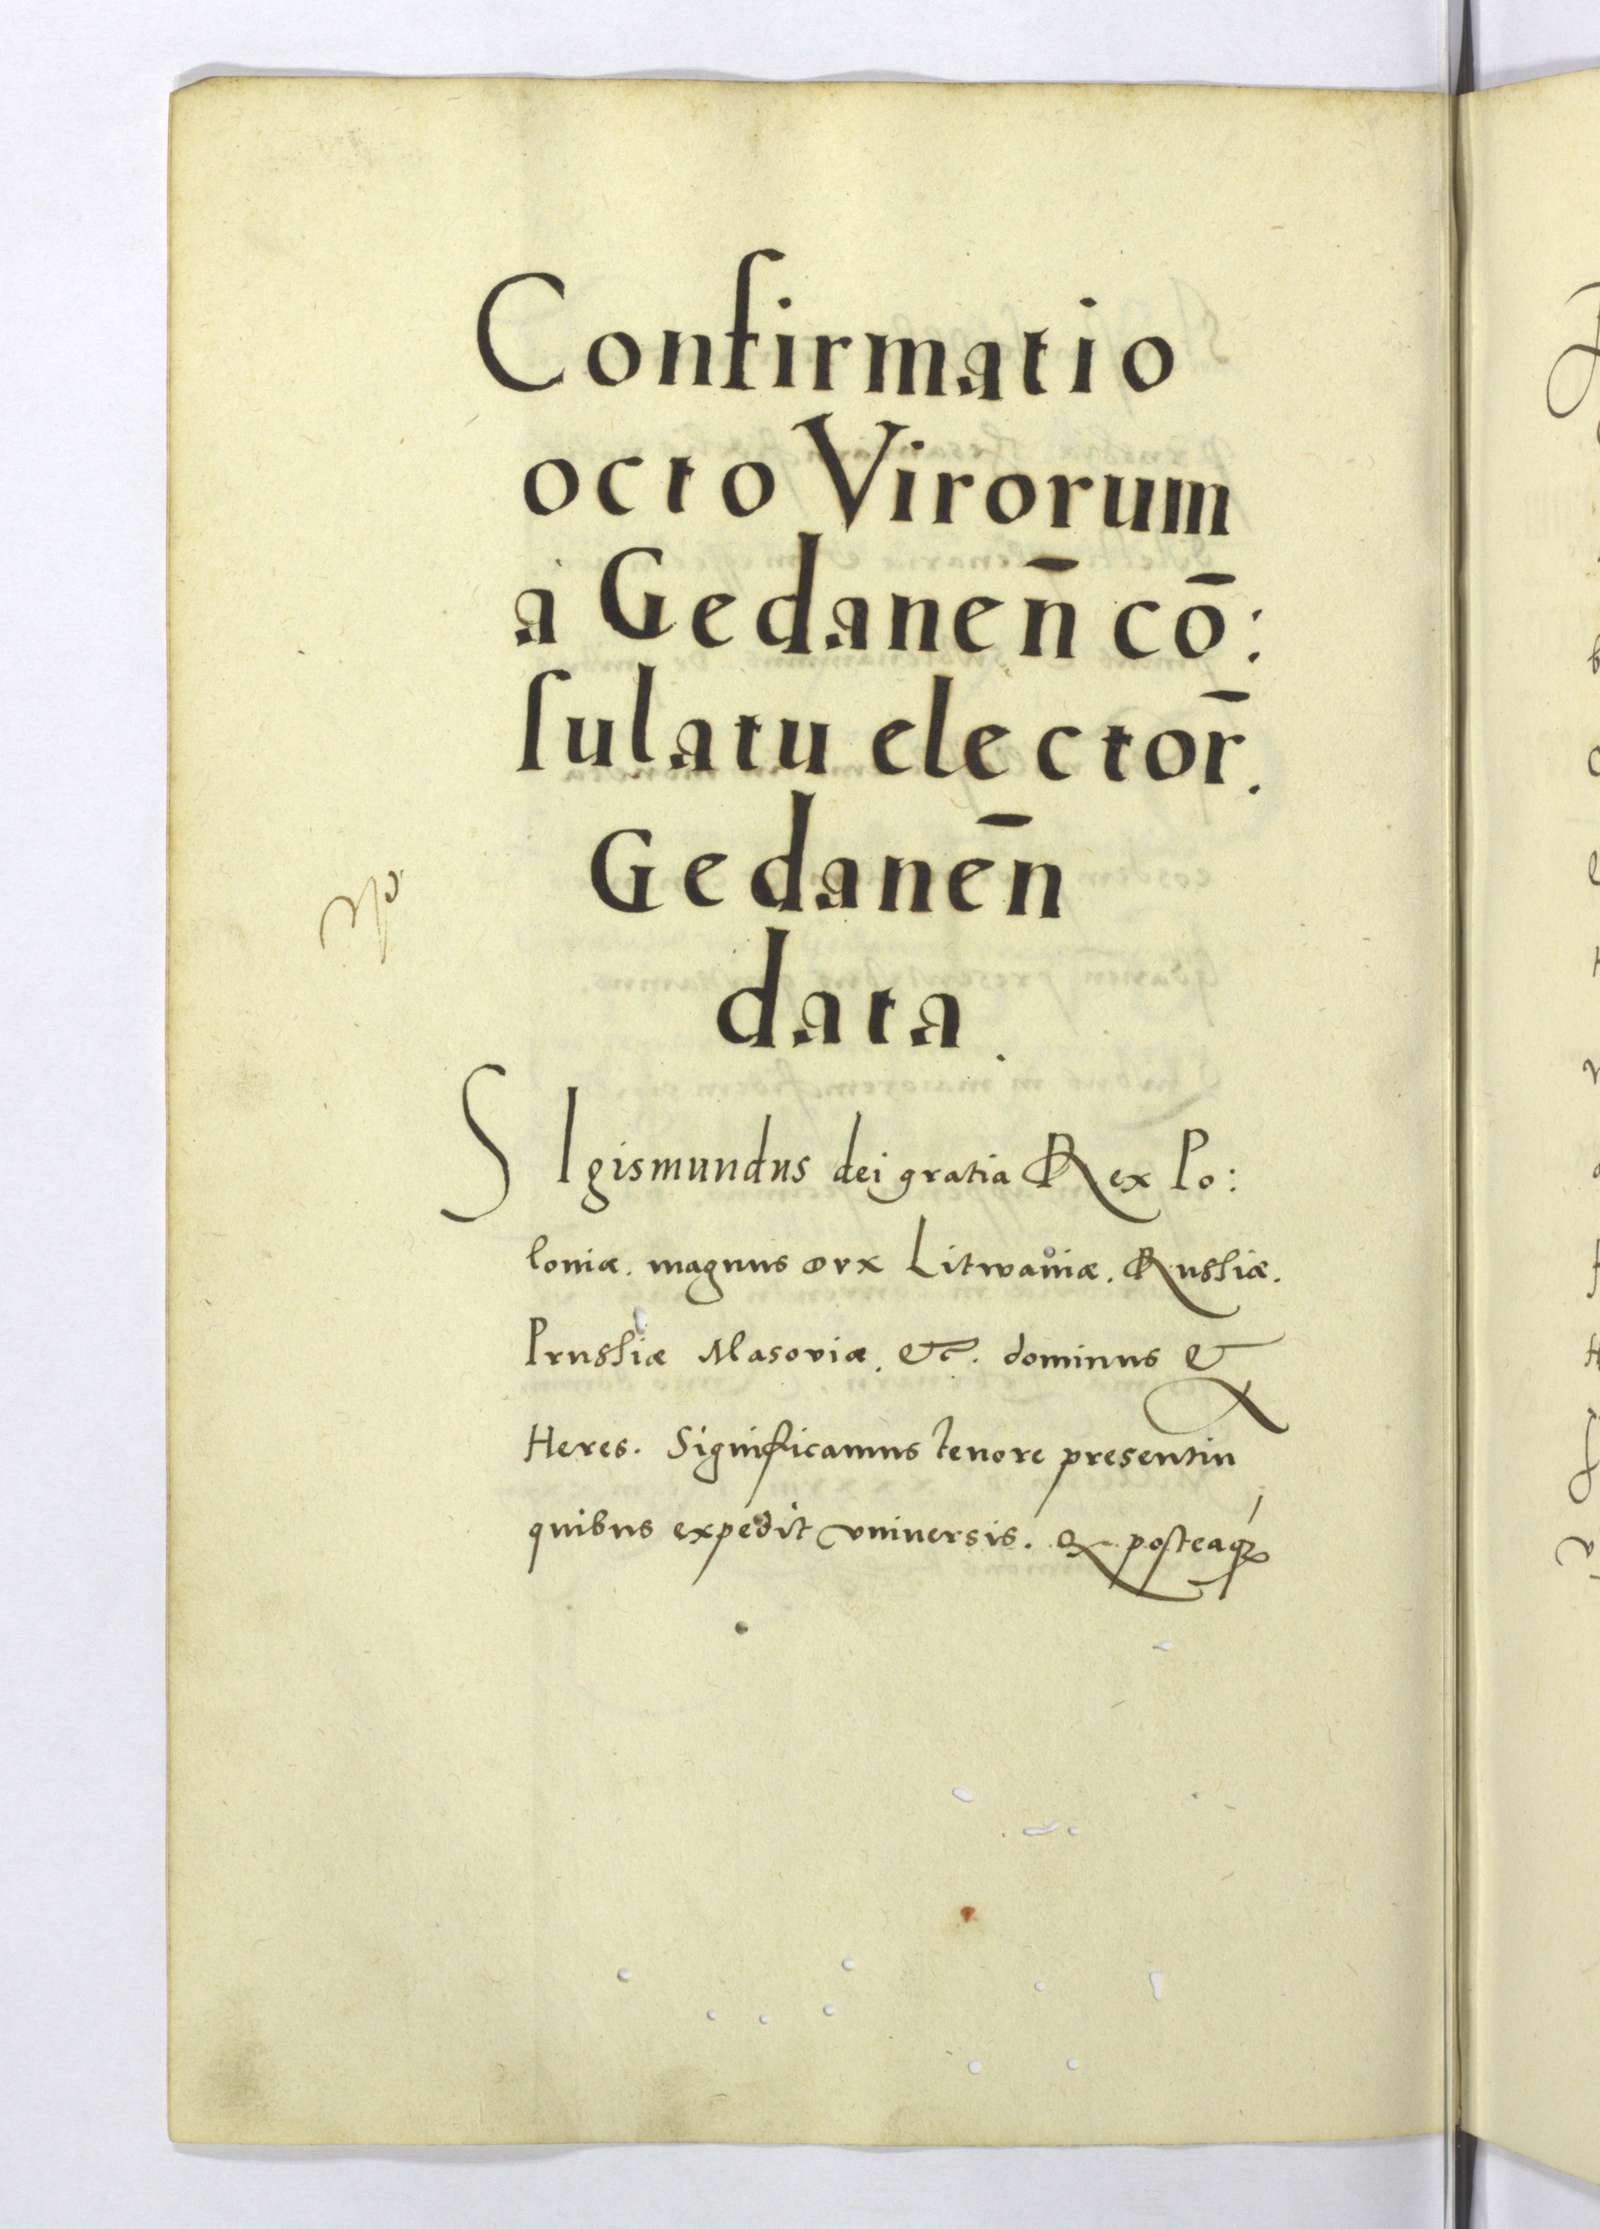 Confirmatio
octo Virorum
a Gedaneñ cō:
ſulatu elector̄.
Gedanen̄
data.
SIgismundus dei gratia Rex Po:
loniæ. magnus dux Litwaniæ. Rusſiæ.
Prusſiæ Masoviæ. &c. dominus &
Heres. Significamus tenore presentiu
quibus expedit vniversis. Q posteaq